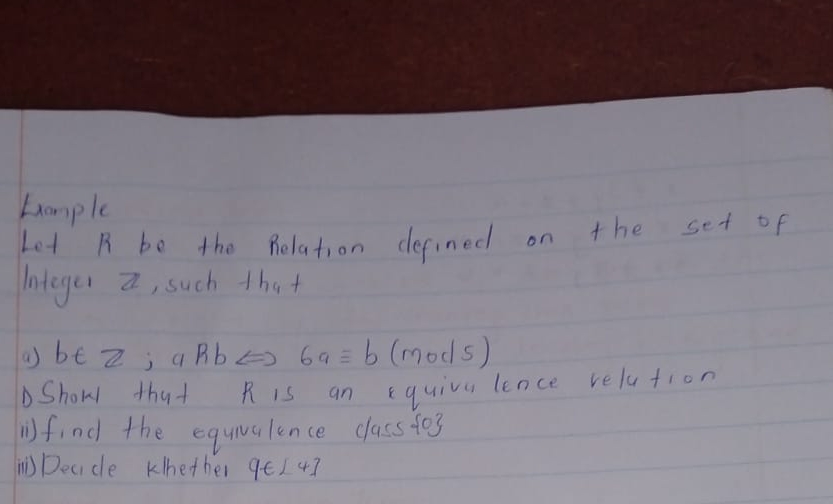 Example
Let R be the Relation defined on the set of
Integer ℤ, such that
a) b ∈ ℤ ; aRb ⇔ 6a ≡ b (mod 5)
i) Show that R is an equivalence relation
ii) find the equivalence class {0}
iii) Decide Whether 9 ∈ [4]